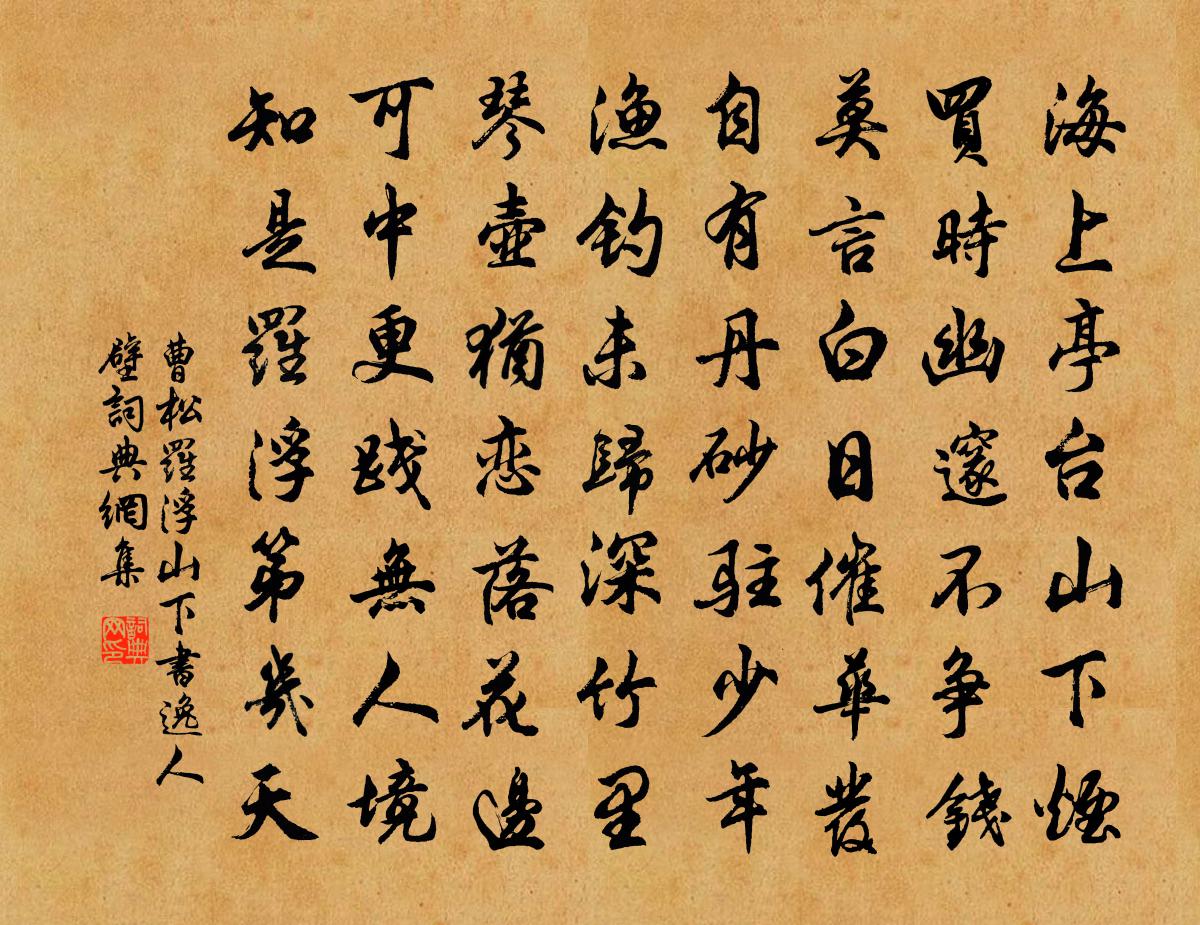 海上亭台山下煙
買時幽邃不爭錢
莫言白日催華髮
自有丹砂駐少年
漁釣未歸深竹里
琴壺猶恋落花邊
可中更踐無人境
知是羅浮第幾天
曹松羅浮山下書逸人
壁詞典網集
詞典网印